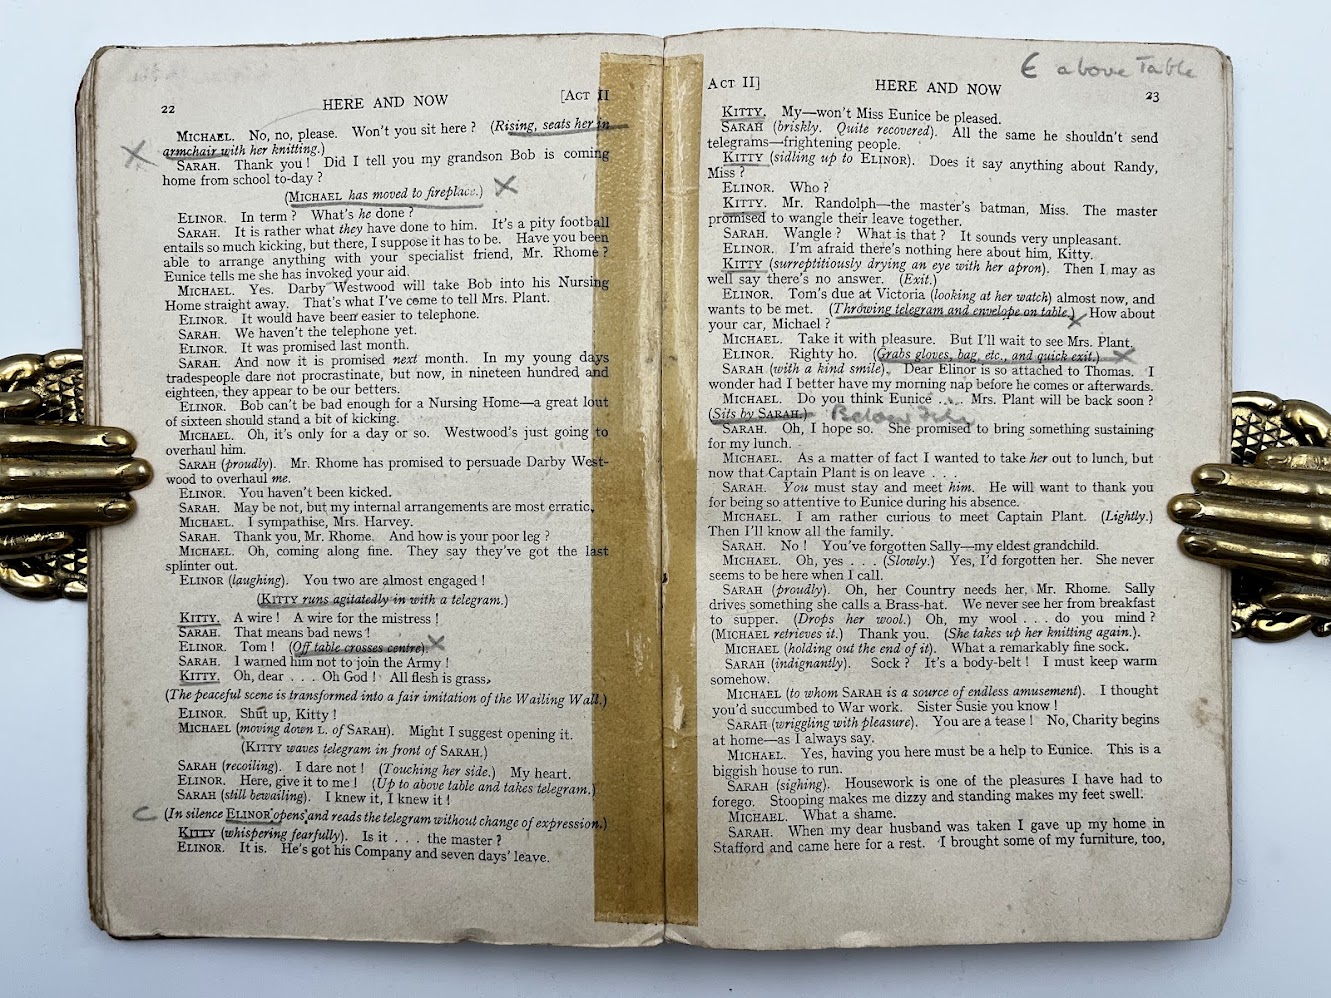 22
HERE AND NOW
[ACT II
MICHAEL. No, no, please. Won't you sit here? (Rising, seats her in
armchair with her knitting.)
X
SARAH. Thank you! Did I tell you my grandson Bob is coming
home from school to-day?
(MICHAEL has moved to fireplace.) X
ELINOR. In term? What's he done?
SARAH. It is rather what they have done to him. It's a pity football
entails so much kicking, but there, I suppose it has to be. Have you been
able to arrange anything with your specialist friend, Mr. Rhome?
Eunice tells me she has invoked your aid.
MICHAEL. Yes. Darby Westwood will take Bob into his Nursing
Home straight away. That's what I've come to tell Mrs. Plant.
ELINOR. It would have been easier to telephone.
SARAH. We haven't the telephone yet.
ELINOR. It was promised last month.
SARAH. And now it is promised next month. In my young days
tradespeople dare not procrastinate, but now, in nineteen hundred and
eighteen, they appear to be our betters.
ELINOR. Bob can't be bad enough for a Nursing Home—a great lout
of sixteen should stand a bit of kicking.
MICHAEL. Oh, it's only for a day or so. Westwood's just going to
overhaul him.
SARAH (proudly). Mr. Rhome has promised to persuade Darby West-
wood to overhaul me.
ELINOR. You haven't been kicked.
SARAH. May be not, but my internal arrangements are most erratic.
MICHAEL. I sympathise, Mrs. Harvey.
SARAH. Thank you, Mr. Rhome. And how is your poor leg?
MICHAEL. Oh, coming along fine. They say they've got the last
splinter out.
ELINOR (laughing). You two are almost engaged!
(KITTY runs agitatedly in with a telegram.)
KITTY. A wire! A wire for the mistress!
SARAH. That means bad news!
ELINOR. Tom! (Off table crosses centre). X
SARAH. I warned him not to join the Army!
KITTY. Oh, dear . . . Oh God! All flesh is grass.
(The peaceful scene is transformed into a fair imitation of the Wailing Wall.)
ELINOR. Shut up, Kitty!
MICHAEL (moving down L. of SARAH). Might I suggest opening it.
(KITTY waves telegram in front of SARAH.)
SARAH (recoiling). I dare not! (Touching her side.) My heart.
ELINOR. Here, give it to me! (Up to above table and takes telegram.)
SARAH (still bewailing). I knew it, I knew it!
C (In silence ELINOR opens and reads the telegram without change of expression.)
KITTY (whispering fearfully). Is it . . . the master?
ELINOR. It is. He's got his Company and seven days' leave.
E above Table
ACT II]
HERE AND NOW
23
KITTY. My—won't Miss Eunice be pleased.
SARAH (briskly. Quite recovered). All the same he shouldn't send
telegrams—frightening people.
KITTY (sidling up to ELINOR). Does it say anything about Randy,
Miss?
ELINOR. Who?
KITTY. Mr. Randolph—the master's batman, Miss. The master
promised to wangle their leave together.
SARAH. Wangle? What is that? It sounds very unpleasant.
ELINOR. I'm afraid there's nothing here about him, Kitty.
KITTY (surreptitiously drying an eye with her apron). Then I may as
well say there's no answer. (Exit.)
ELINOR. Tom's due at Victoria (looking at her watch) almost now, and
wants to be met. (Throwing telegram and envelope on table.) X How about
your car, Michael?
MICHAEL. Take it with pleasure. But I'll wait to see Mrs. Plant.
ELINOR. Righty ho. (Grabs gloves, bag, etc., and quick exit.) X
SARAH (with a kind smile). Dear Elinor is so attached to Thomas. I
wonder had I better have my morning nap before he comes or afterwards.
MICHAEL. Do you think Eunice . . . Mrs. Plant will be back soon?
(Sits by SARAH.) Below
SARAH. Oh, I hope so. She promised to bring something sustaining
for my lunch.
MICHAEL. As a matter of fact I wanted to take her out to lunch, but
now that Captain Plant is on leave . . .
SARAH. You must stay and meet him. He will want to thank you
for being so attentive to Eunice during his absence.
MICHAEL. I am rather curious to meet Captain Plant. (Lightly.)
Then I'll know all the family.
SARAH. No! You've forgotten Sally—my eldest grandchild.
MICHAEL. Oh, yes . . . (Slowly.) Yes, I'd forgotten her. She never
seems to be here when I call.
SARAH (proudly). Oh, her Country needs her, Mr. Rhome. Sally
drives something she calls a Brass-hat. We never see her from breakfast
to supper. (Drops her wool.) Oh, my wool . . . do you mind?
(MICHAEL retrieves it.) Thank you. (She takes up her knitting again.).
MICHAEL (holding out the end of it). What a remarkably fine sock.
SARAH (indignantly). Sock? It's a body-belt! I must keep warm
somehow.
MICHAEL (to whom SARAH is a source of endless amusement). I thought
you'd succumbed to War work. Sister Susie you know!
SARAH (wriggling with pleasure). You are a tease! No, Charity begins
at home—as I always say.
MICHAEL. Yes, having you here must be a help to Eunice. This is a
biggish house to run.
SARAH (sighing). Housework is one of the pleasures I have had to
forego. Stooping makes me dizzy and standing makes my feet swell.
MICHAEL. What a shame.
SARAH. When my dear husband was taken I gave up my home in
Stafford and came here for a rest. I brought some of my furniture, too,